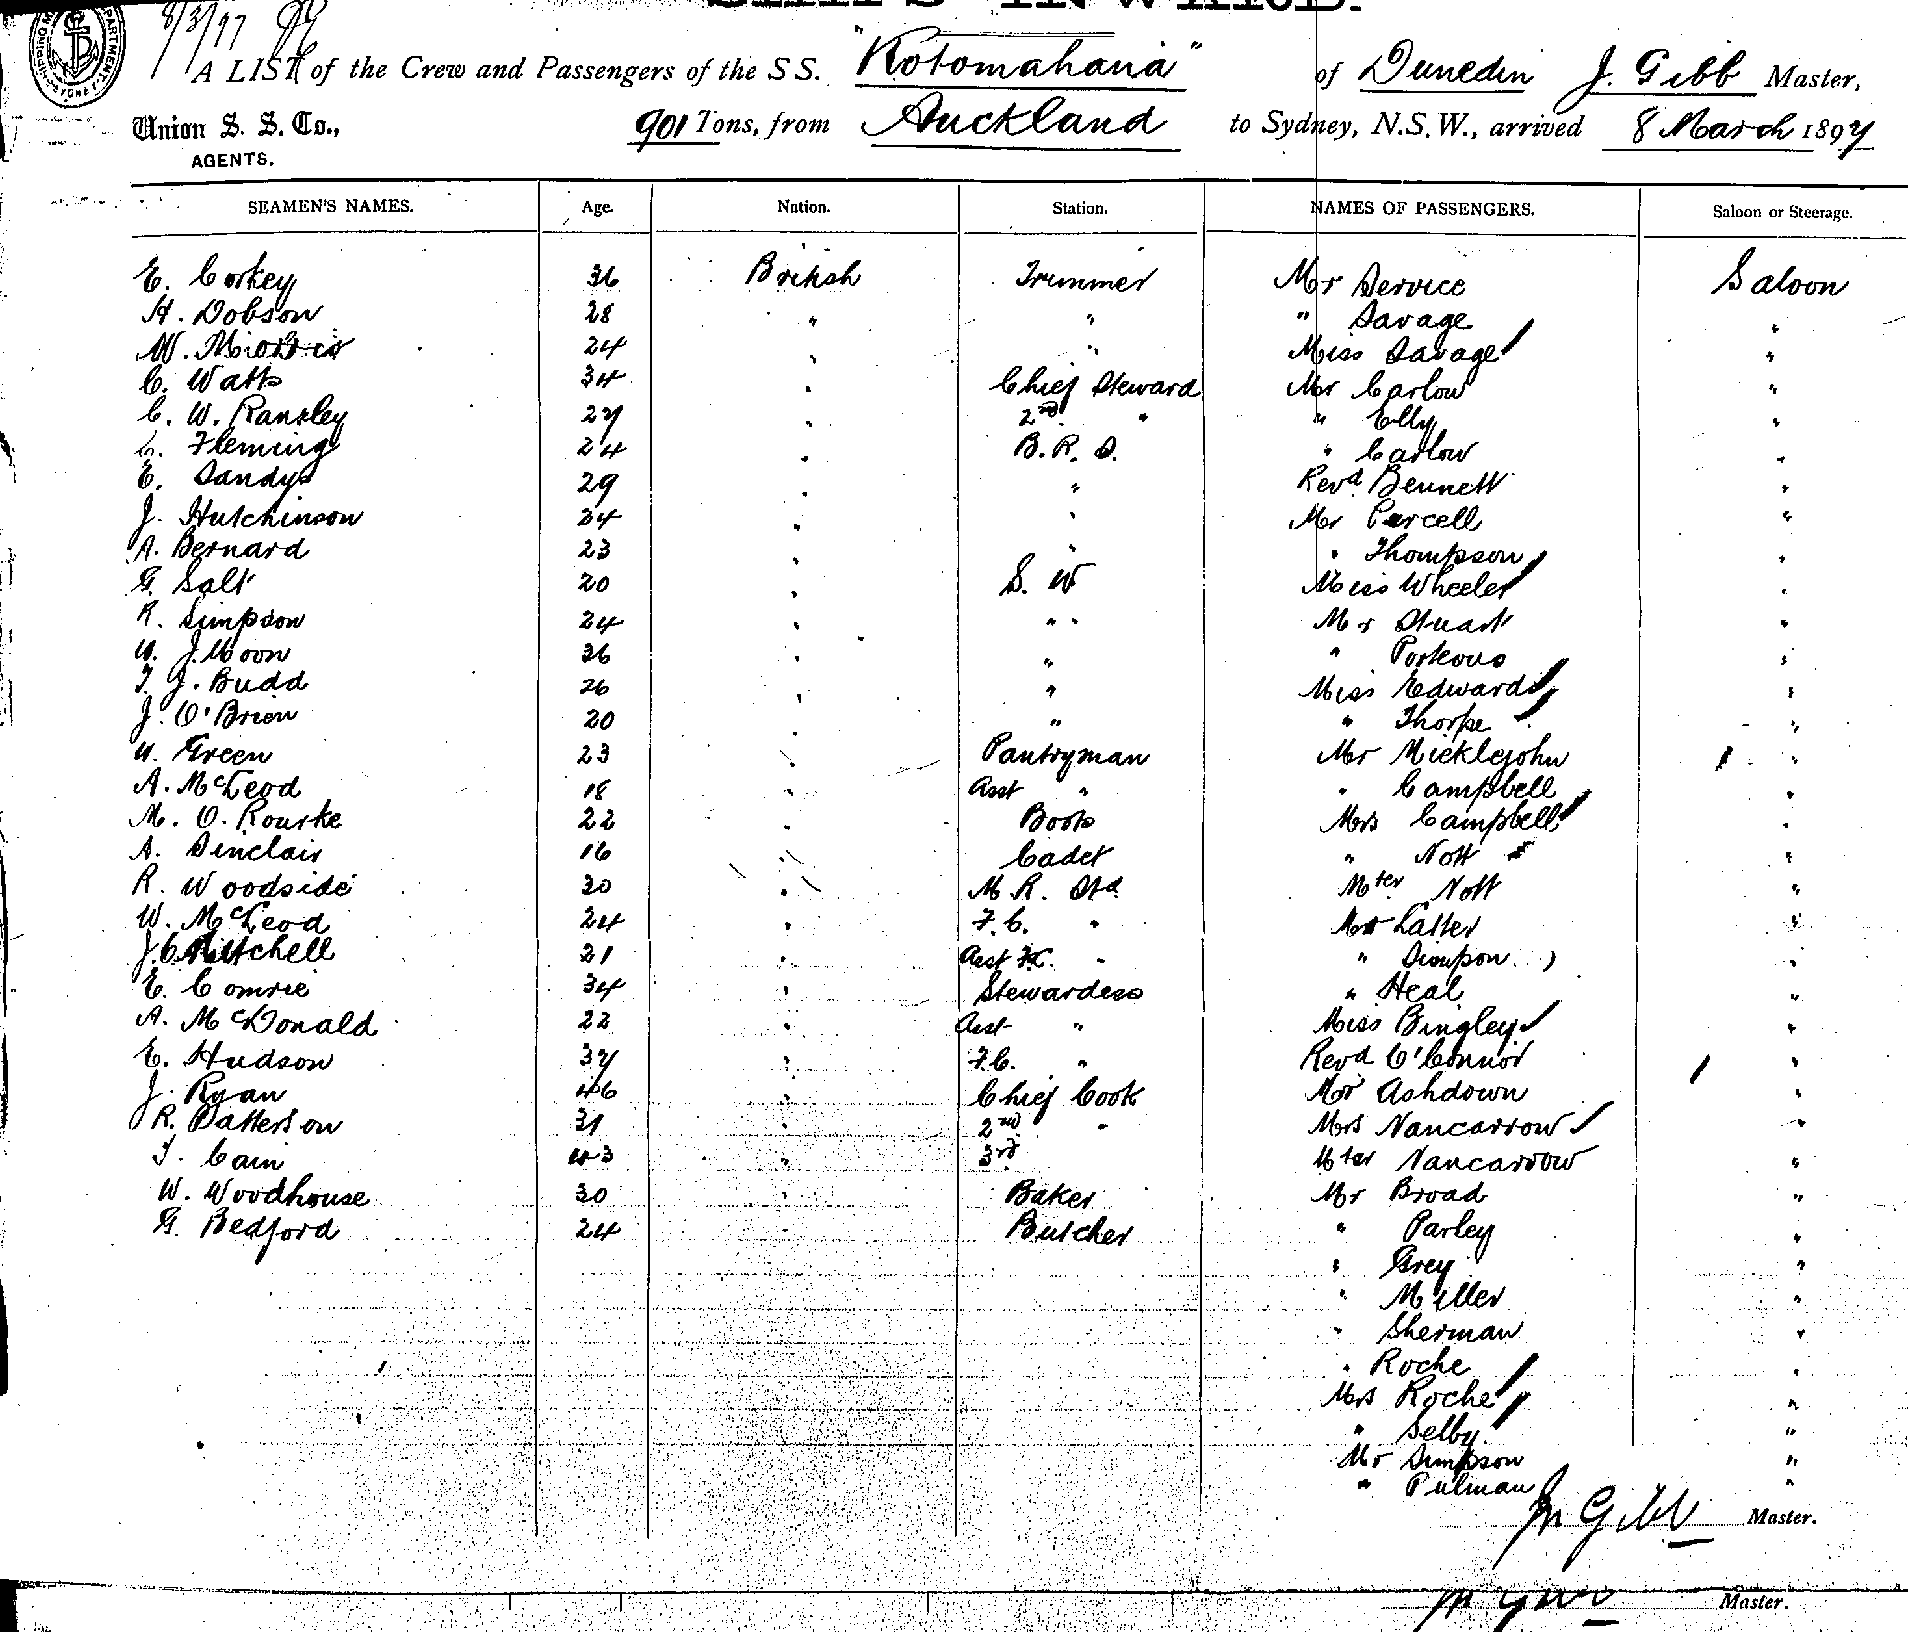 8/3/97
A LIST of the Crew and Passengers of the SS. "Rotomahana" of Dunedin J. Gibb Master,
Union S. S. Co., AGENTS. 901 Tons, from Auckland to Sydney, N.S.W., arrived 8 March 1897
SEAMEN'S NAMES. Age. Nation. Station. NAMES OF PASSENGERS. Saloon or Steerage.
E. Corkey 36 British Trimmer Mr Service Saloon
H. Dobson 28 " " " Savage "
W. 24 " " Miss Savage "
C. Watts 34 " Chief Steward Mr Carlow "
C. W. Ransley 27 " 2nd " " Elly "
L. Fleming 24 " B. R. S. " Carlow "
E. Sandys 29 " " Revd. Bennett "
J. Hutchinson 24 " " Mr Purcell "
A. Bernard 23 " " " Thompson "
G. Salt 20 " S. W Miss Wheeler "
R. Simpson 24 " " " Mr Stuart "
W. J. Moon 36 " " " Porteous "
T. J. Budd 26 " " Miss Edwards "
J. O'Brien 20 " " " Thorpe "
W. Green 23 " Pantryman Mr Micklejohn "
A. McLeod 18 " Asst " " Campbell "
M. O. Rourke 22 " Boots Mrs Campbell "
A. Sinclair 16 " Cadet " Nott "
R. Woodside 30 " M R. Std. Mter Nott "
W. McLeod 24 " F. C. " Mrs Latter "
J. C. Mitchell 21 " Asst F.C. " " Simpson "
E. Comrie 34 " Stewardess " Heal "
A. McDonald 22 " Asst " Miss Bingley "
E. Hudson 37 " F.C. " Revd O'Connor "
J. Ryan 46 " Chief Cook Mr Ashdown "
R. Patterson 31 " 2nd " Mrs Nancarrow "
T. Cain 43 " 3rd Mter Nancarrow "
W. Woodhouse 30 " Baker Mr Broad "
G. Bedford 24 " Butcher " Parley "
" Grey "
" Miller "
" Sherman "
" Roche "
Mrs Roche "
" Selby "
Mr Simpson "
" Pulman "
Jn Gibb Master.
Master.